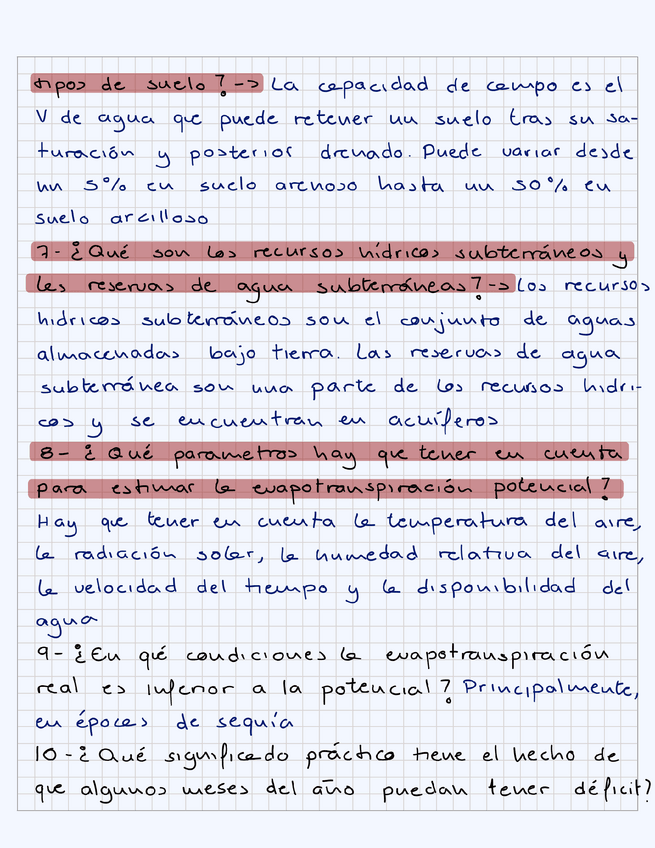 tipos de suelo? -> La capacidad de campo es el
V de agua que puede retener un suelo tras su sa-
turación y posterior drenado. Puede variar desde
un 5% en suelo arenoso hasta un 50% en
suelo arcilloso
7- ¿Qué son los recursos hídricos subterráneos y
las reservas de agua subterráneas? -> Los recursos
hidricos subterráneos son el conjunto de aguas
almacenadas bajo tierra. Las reservas de agua
subterránea son una parte de los recursos hidri-
cos y se encuentran en acuíferos
8- ¿Qué parametros hay que tener en cuenta
para estimar la evapotranspiración potencial?
Hay que tener en cuenta la temperatura del aire,
la radiación solar, la humedad relativa del aire,
la velocidad del tiempo y la disponibilidad del
agua
9- ¿En qué condiciones la evapotranspiración
real es inferior a la potencial? Principalmente,
en épocas de sequía
10- ¿Qué significado práctico tiene el hecho de
que algunos meses del año puedan tener déficit?